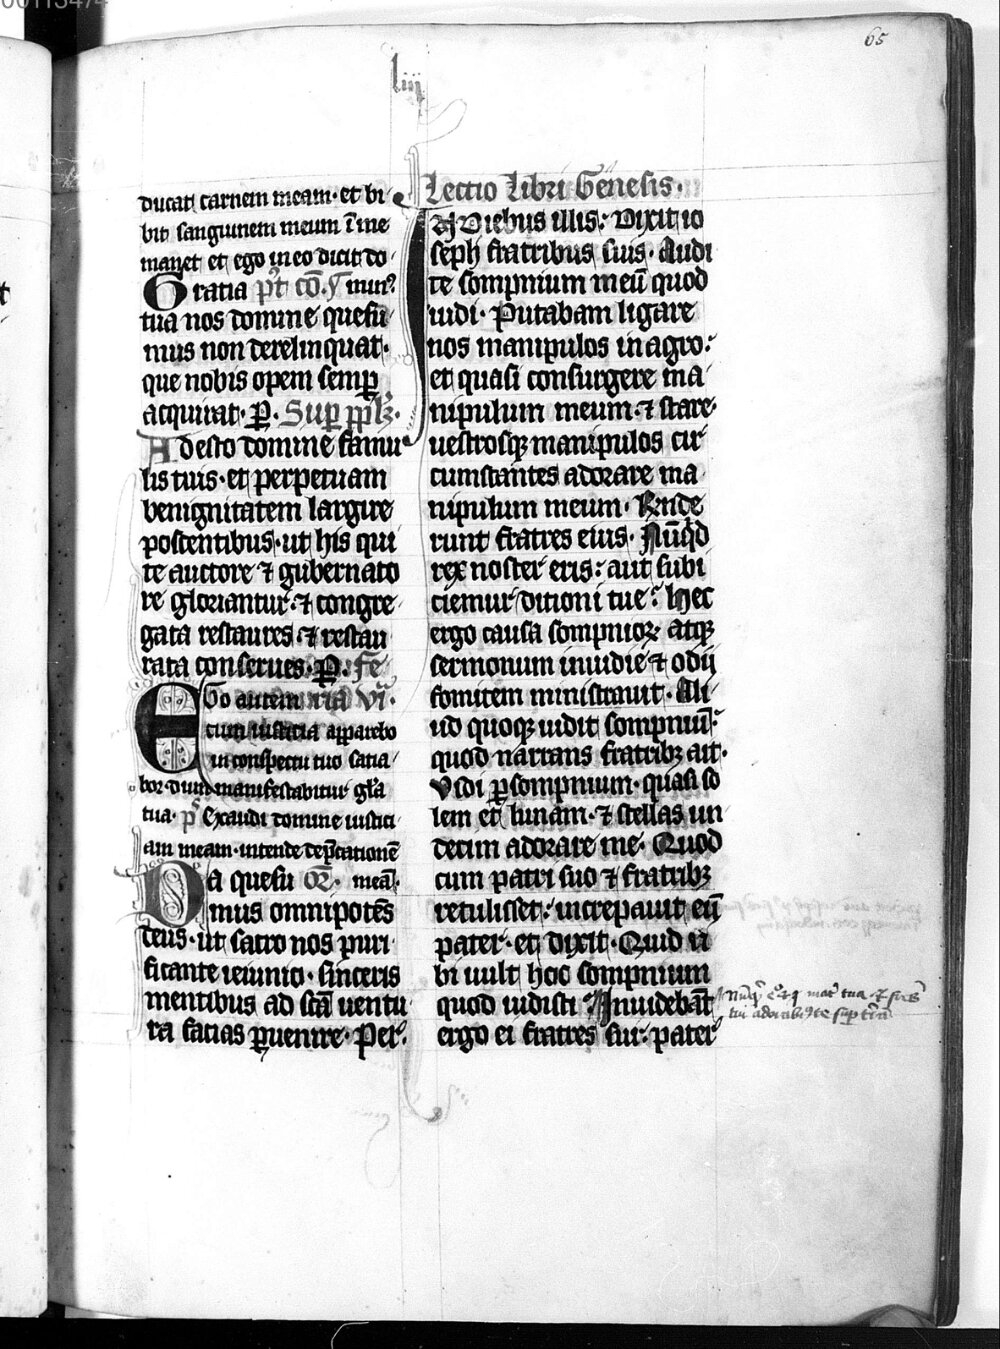 65
liij
ducat carnem meam· et bi
bit sanguinem meum ī me
manet et ego in eo dicit do
Gratia pͬt cō. mun⁹
tua nos domine quesu
mus non derelinquat·
que nobis opem semꝑ
acquirat· P. Suꝑ ppl̄ꝫ·
Adesto domine famu
lis tuis· et perpetuam
benignitatem largire
postentibus· ut his qui
te auctore ⁊ gubernato
re gloriantur· ⁊ congre
gata restaures· ⁊ restau
rata conserues· P. Fe
EGo autem ria vi·
cum iusticia apparebo
in conspectu tuo satia
bor· dum manifestabitur gl̄a
tua· p̄s Exaudi domine iustici
am meam· intende dep̄cationē
Da quesu or̄· meā·
mus omnipotēs
deus· ut sacro nos puri
ficante ieiunio· sinceris
mentibus ad scā uentu
ra facias ꝑuenire· Per·
Lectio Libri Genesis·
IN Diebus illis: Dixit io
seph fratribus suis· Audi
te sompnium meū quod
uidi· Putabam ligare
nos manipulos in agro:
et quasi consurgere ma
nipulum meum· ⁊ stare·
uestrosqꝫ manipulos cir
cumstantes adorare ma
nipulum meum· Rn̄de
runt fratres eius· Nūq̇d
rex noster eris: aut subi
ciemur ditioni tue? Hec
ergo causa sompnioꝝ atqꝫ
sermonum inuidie ⁊ odii
fomitem ministrauit· Ali
ud quoqꝫ uidit sompniū:
quod narrans fratribꝫ ait·
Vidi ꝑ sompnium· quasi so
lem et lunam· ⁊ stellas un
decim adorare me· Quod
cum patri suo ⁊ fratribꝫ
retulisset: increpauit eū
pater· et dixit· Quid ti
bi uult hoc sompnium
quod uidisti Inuidebāt
ergo ei fratres sui: pater
Nūqͥd ego ⁊ mat̄ tua ⁊ fr̄es
tui adorabimꝰ te suꝑ t̄ra